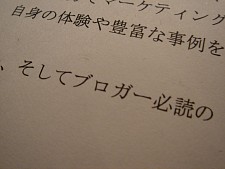 てマーケティング
自身の体験や豊富な事例を
、そしてブロガー必読の